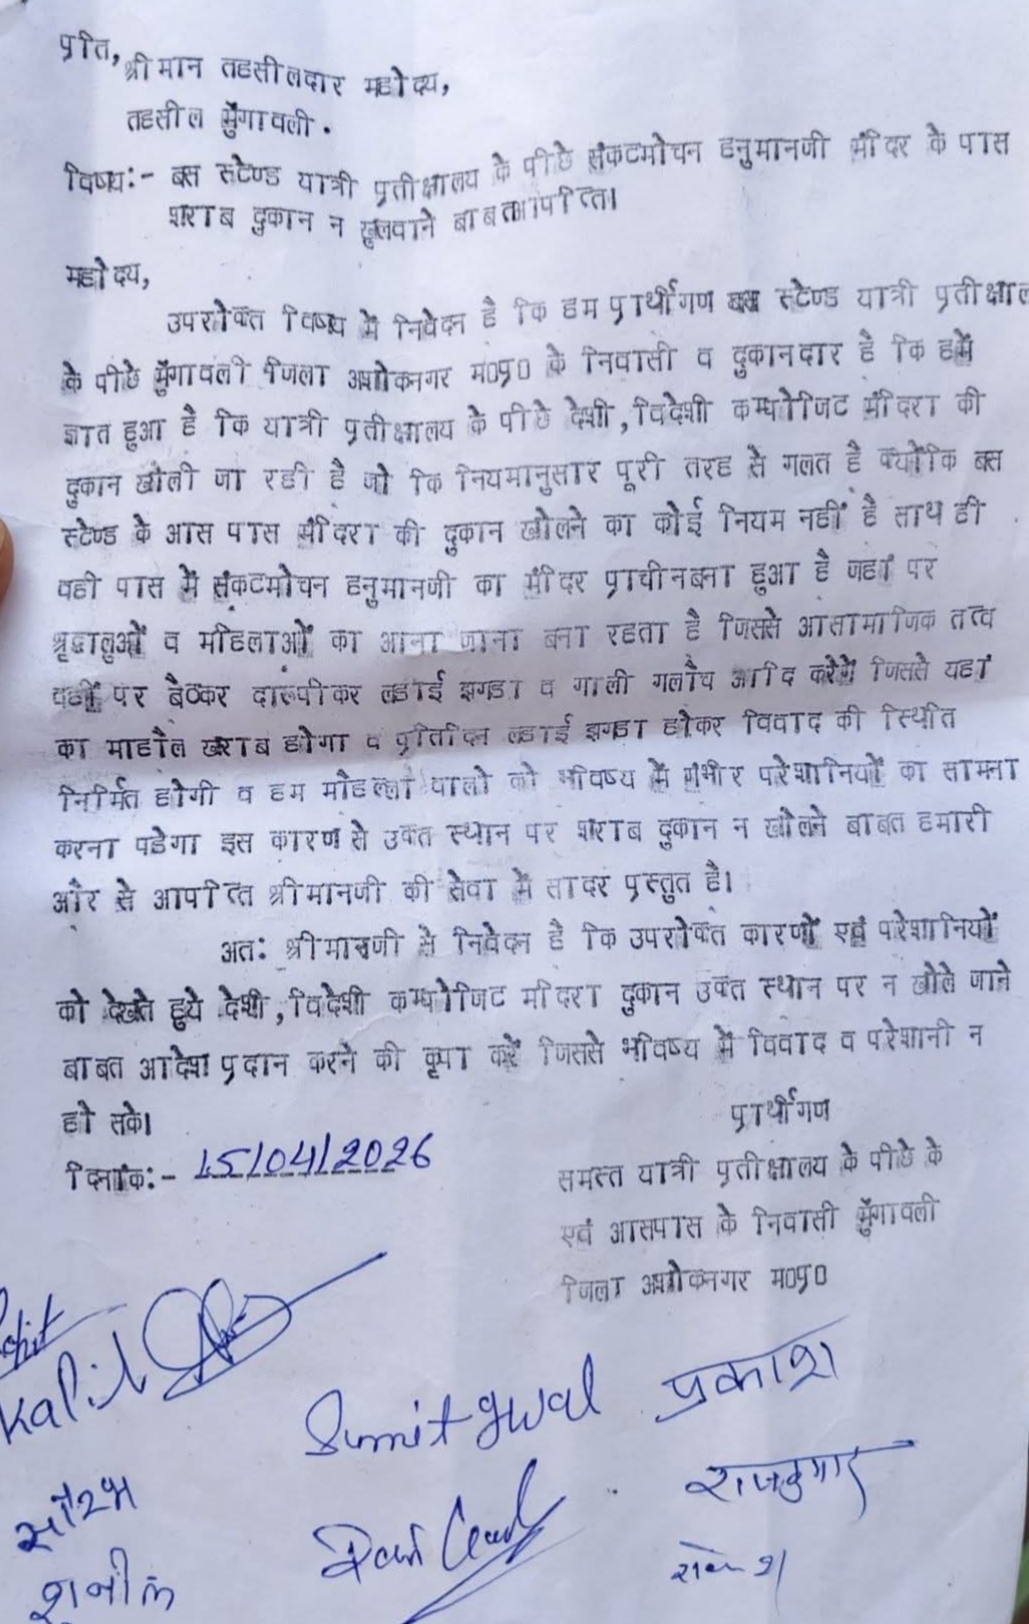 प्रति,
श्रीमान तहसीलदार महोदय,
तहसील मुँगावली.
विषय:- बस स्टेण्ड यात्री प्रतीक्षालय के पीछे संकटमोचन हनुमानजी मंदिर के पास
शराब दुकान न खुलवाने बाबत आपत्ति।
महोदय,
उपरोक्त विषय में निवेदन है कि हम प्रार्थीगण बस स्टेण्ड यात्री प्रतीक्षाल
के पीछे मुँगावली जिला अशोकनगर म0प्र0 के निवासी व दुकानदार है कि हमें
ज्ञात हुआ है कि यात्री प्रतीक्षालय के पीछे देशी,विदेशी कम्पोजिट मंदिरा की
दुकान खोली जा रही है जो कि नियमानुसार पूरी तरह से गलत है क्योंकि बस
स्टेण्ड के आस पास मंदिरा की दुकान खोलने का कोई नियम नहीं है साथ ही
वही पास में संकटमोचन हनुमानजी का मंदिर प्राचीन बना हुआ है जहां पर
श्रृद्धालुओं व महिलाओं का आना जाना बना रहता है जिससे आसामाजिक तत्व
वहीं पर बैठकर दारूपीकर लडाई झगडा व गाली गलौच आदि करेगें जिससे यहां
का माहौल खराब होगा व प्रतिदिन लडाई झगडा होकर विवाद की स्थिति
निर्मित होगी व हम मोहल्ला वालो को भविष्य में गंभीर परेशानियों का सामना
करना पडेगा इस कारण से उक्त स्थान पर शराब दुकान न खोलने बाबत हमारी
और से आपत्ति श्रीमानजी की सेवा में सादर प्रस्तुत है।
अत: श्रीमानजी से निवेदन है कि उपरोक्त कारणों एवं परेशानियों
को देखते हुये देशी,विदेशी कम्पोजिट मदिरा दुकान उक्त स्थान पर न खोले जाने
बाबत आदेश प्रदान करने की कृपा करें जिससे भविष्य में विवाद व परेशानी न
हो सके।
प्रार्थीगण
दिनांक:- 15/04/2026
समस्त यात्री प्रतीक्षालय के पीछे के
एवं आसपास के निवासी मुँगावली
जिला अशोकनगर म0प्र0
Kapil
Sumit gwal प्रकाश
सौरभ
राजकुमार